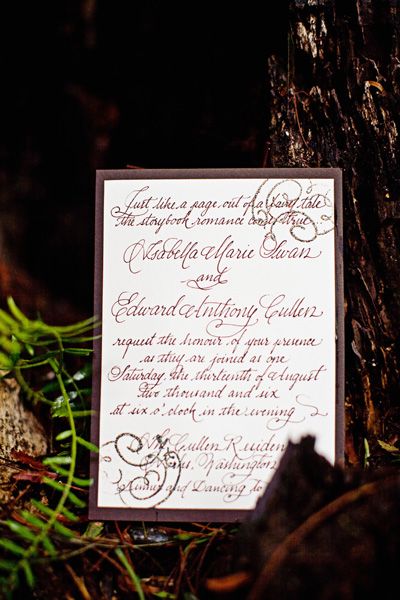 Just like a page out of a fairy tale
the storybook romance comes true
Isabella Marie Swan
and
Edward Anthony Cullen
request the honour of your presence
as they are joined as one
Saturday, the thirteenth of August
Two thousand and six
at six o'clock in the evening
Cullen Residen
Forks, Washington
Dinner and Dancing to